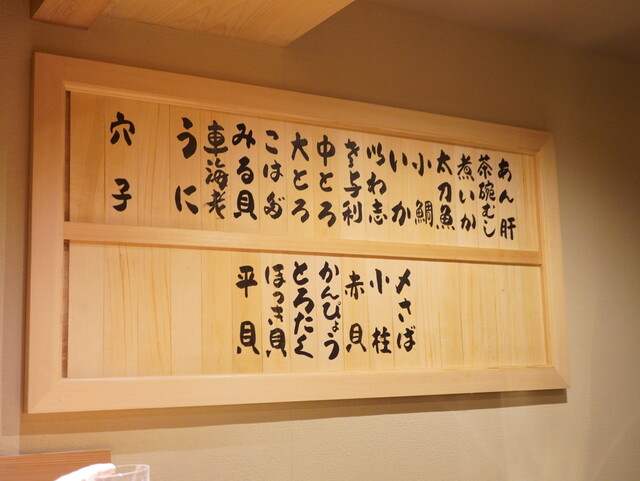 あん肝
茶碗むし
煮いか
太刀魚
小鯛
いか
以わ志
さ与利
中とろ
大とろ
こはだ
みる貝
車海老
うに
穴子
〆さば
小柱
赤貝
かんぴょう
とろたく
ほっき貝
平貝